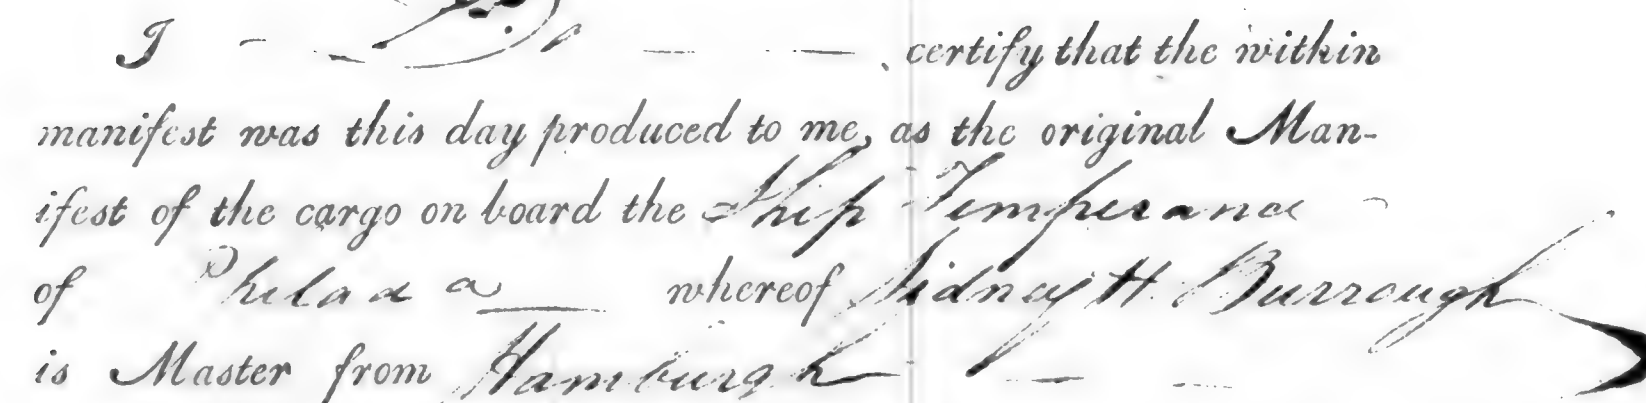 I certify that the within
manifest was this day produced to me, as the original Man-
ifest of the cargo on board the Ship Temperance
of Philada whereof Sidney H Burrough
is Master from Hamburgh